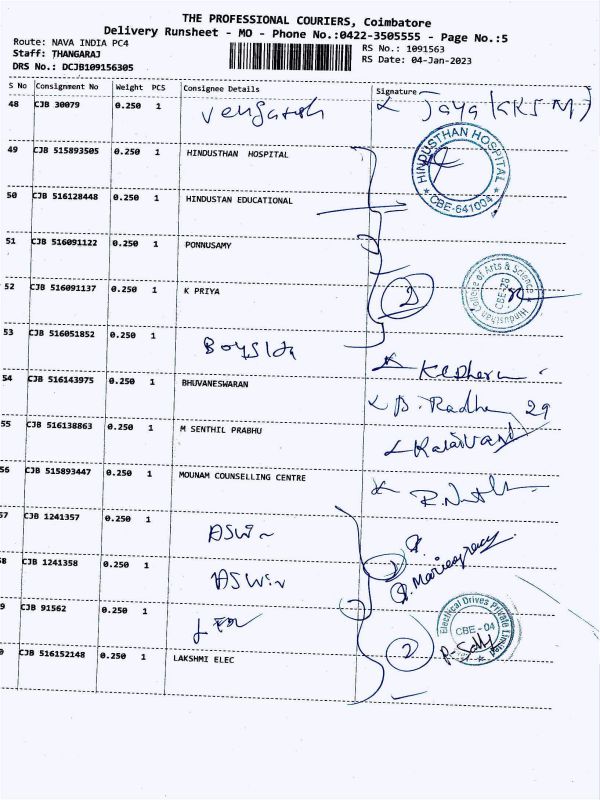 THE PROFESSIONAL COURIERS, Coimbatore
Delivery Runsheet - MO - Phone No.:0422-3505555 - Page No.:5
Route: NAVA INDIA PC4
Staff: THANGARAJ
DRS No.: DCJB109156305
RS No.: 1091563
RS Date: 04-Jan-2023
S No Consignment No Weight PCS Consignee Details Signature
48 CJB 30079 0.250 1
Jaya (GKSM)
49 CJB 515893505 0.250 1 HINDUSTHAN HOSPITAL
HINDUSTHAN HOSPITAL
CBE-641004
50 CJB 516128448 0.250 1 HINDUSTAN EDUCATIONAL
51 CJB 516091122 0.250 1 PONNUSAMY
52 CJB 516091137 0.250 1 K PRIYA
2
Hindusthan College of Arts & Science
CBE-28
53 CJB 516051852 0.250 1
54 CJB 516143975 0.250 1 BHUVANESWARAN
B. Radha 29
55 CJB 516138863 0.250 1 M SENTHIL PRABHU
56 CJB 515893447 0.250 1 MOUNAM COUNSELLING CENTRE
57 CJB 1241357 0.250 1 ASWIN
58 CJB 1241358 0.250 1 ASWIN
9 CJB 91562 0.250 1
Electrical Drives Private Limited
CBE - 04
0 CJB 516152148 0.250 1 LAKSHMI ELEC
2